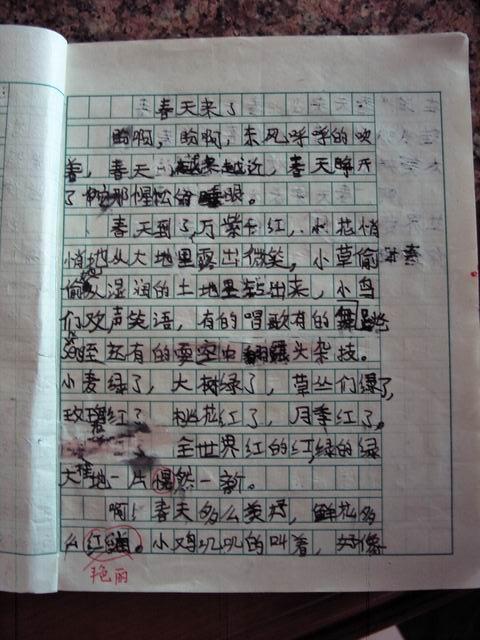 春天来了
盼啊，盼啊，东风呼呼的吹
着，春天越来越近，春天睁开
了她那惺忪的睡眼。
春天到了，万紫千红，小花悄
悄地从大地里露出微笑，小草偷
偷从湿润的土地里钻出来，小鸟
们欢声笑语，有的唱歌有的舞
起有的空中翻头杂技。
小麦绿了，大树绿了，草丛们绿了，
玫瑰红了，桃花红了，月季红了。
全世界红的红绿的绿
大地一片焕然一新。
啊！春天多么美好，鲜花多
么红。小鸡叽叽的叫着，好像
艳丽